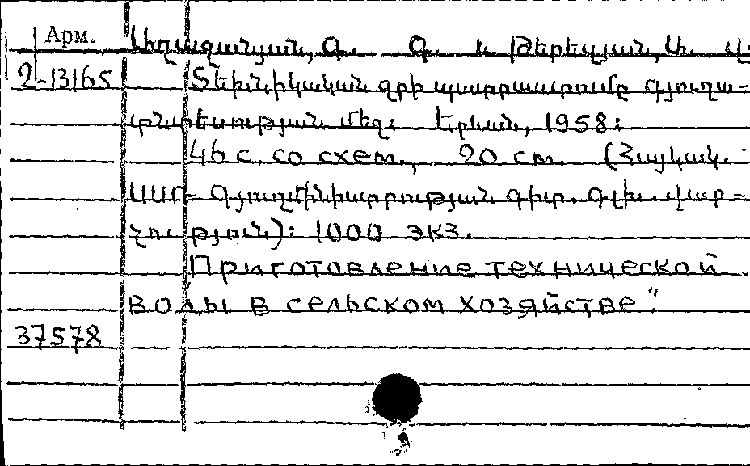 Арм.
Եղազանյան, Գ. Գ. և Թերեյան, Ա. Վ
2-13165 Տեխնիկական ջրի պատրաստումը գյուղա-
տնտեսության մեջ: Երևան, 1958:
46 с. со схем., 20 см. (Հայկակ.
ՍՍՌ Գյուղմինիստրության գիտ. գլխ. վար-
չություն): 1000 экз.
Приготовление технической
воды в сельском хозяйстве"
37578